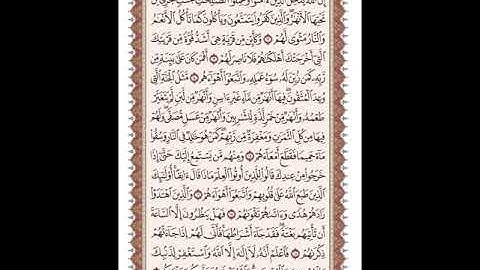 إِنَّ اللَّهَ يُدْخِلُ الَّذِينَ ءَامَنُوا وَعَمِلُوا الصَّالِحَاتِ جَنَّاتٍ تَجْرِي مِن
تَحْتِهَا الْأَنْهَارُ وَالَّذِينَ كَفَرُوا يَتَمَتَّعُونَ وَيَأْكُلُونَ كَمَا تَأْكُلُ الْأَنْعَامُ
وَالنَّارُ مَثْوًى لَّهُمْ ۝ وَكَأَيِّن مِّن قَرْيَةٍ هِيَ أَشَدُّ قُوَّةً مِّن قَرْيَتِكَ
الَّتِي أَخْرَجَتْكَ أَهْلَكْنَاهُمْ فَلَا نَاصِرَ لَهُمْ ۝ أَفَمَن كَانَ عَلَىٰ بَيِّنَةٍ مِّن
رَّبِّهِ كَمَن زُيِّنَ لَهُ سُوءُ عَمَلِهِ وَاتَّبَعُوا أَهْوَاءَهُم ۝ مَّثَلُ الْجَنَّةِ
الَّتِي وُعِدَ الْمُتَّقُونَ فِيهَا أَنْهَارٌ مِّن مَّاءٍ غَيْرِ ءَاسِنٍ وَأَنْهَارٌ مِّن لَّبَنٍ لَّمْ يَتَغَيَّرْ
طَعْمُهُ وَأَنْهَارٌ مِّنْ خَمْرٍ لَّذَّةٍ لِّلشَّارِبِينَ وَأَنْهَارٌ مِّنْ عَسَلٍ مُّصَفًّى وَلَهُمْ
فِيهَا مِن كُلِّ الثَّمَرَاتِ وَمَغْفِرَةٌ مِّن رَّبِّهِمْ كَمَنْ هُوَ خَالِدٌ فِي النَّارِ وَسُقُوا
مَاءً حَمِيمًا فَقَطَّعَ أَمْعَاءَهُمْ ۝ وَمِنْهُم مَّن يَسْتَمِعُ إِلَيْكَ حَتَّىٰ إِذَا
خَرَجُوا مِنْ عِندِكَ قَالُوا لِلَّذِينَ أُوتُوا الْعِلْمَ مَاذَا قَالَ ءَانِفًا أُولَٰئِكَ
الَّذِينَ طَبَعَ اللَّهُ عَلَىٰ قُلُوبِهِمْ وَاتَّبَعُوا أَهْوَاءَهُمْ ۝ وَالَّذِينَ اهْتَدَوْا
زَادَهُمْ هُدًى وَءَاتَاهُمْ تَقْوَاهُمْ ۝ فَهَلْ يَنظُرُونَ إِلَّا السَّاعَةَ
أَن تَأْتِيَهُم بَغْتَةً فَقَدْ جَاءَ أَشْرَاطُهَا فَأَنَّىٰ لَهُمْ إِذَا جَاءَتْهُمْ
ذِكْرَاهُمْ ۝ فَاعْلَمْ أَنَّهُ لَا إِلَٰهَ إِلَّا اللَّهُ وَاسْتَغْفِرْ لِذَنبِكَ